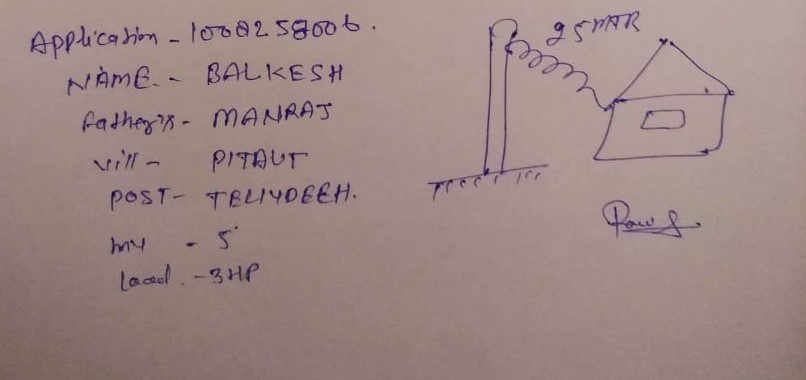 Application - 1008258006.
NAME. - BALKESH
Father's - MANRAJ
vill - PITAUT
POST - TELIYDEEH.
my - 5
Load. - 3HP
25 MTR